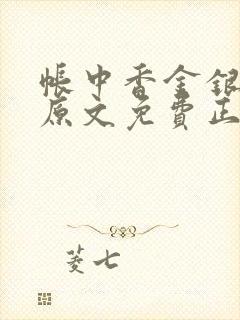 帳中香金銀
原文免費正
菱七